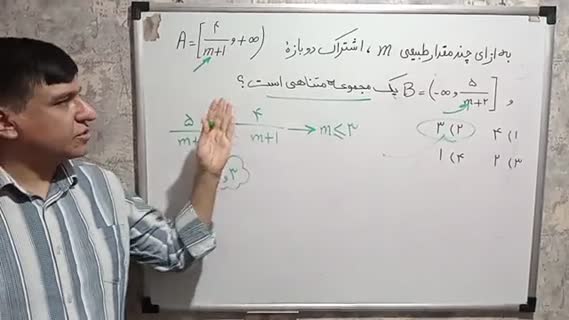 به ازای چند مقدار طبیعی m ، اشتراک دو بازهٔ A = [۴/m+۱ , +∞)
و B = (-∞ , ۵/m+۲] یک مجموعه متناهی است ؟
۱) ۴ ۲) ۳
۳) ۲ ۴) ۱
۵ ۴/m+۱ → m ≤ ۳